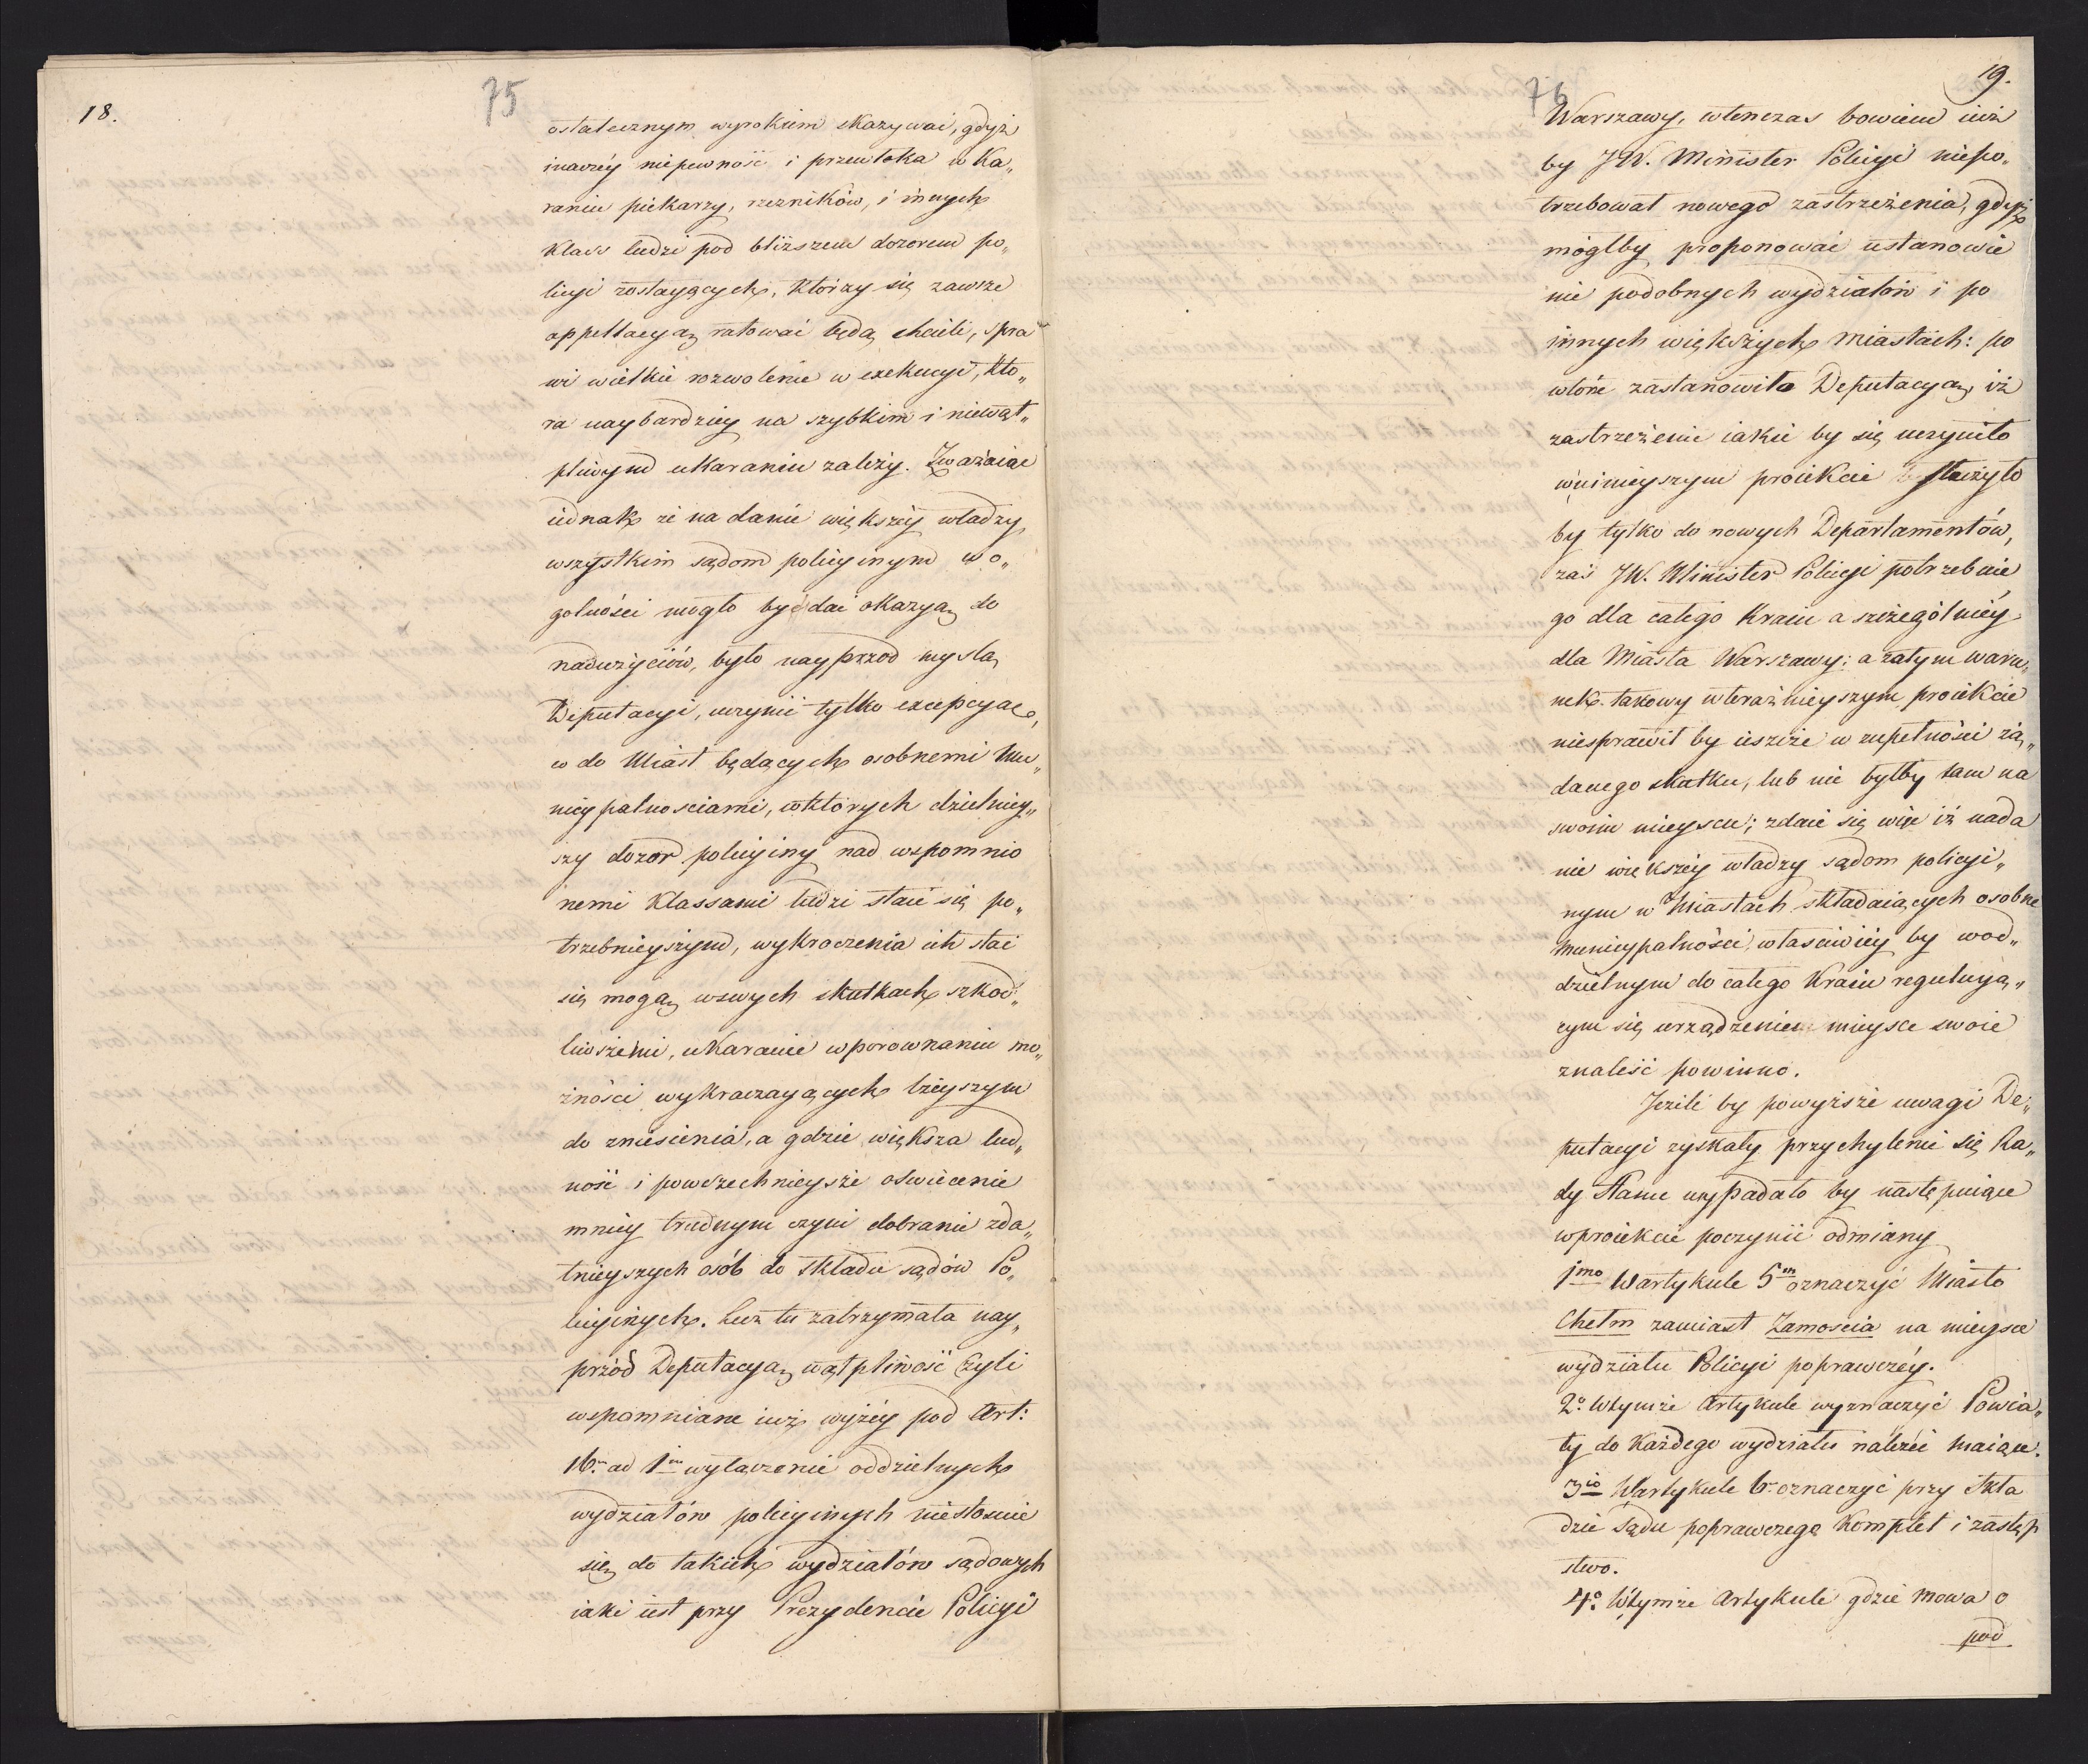 18.
75
ostatecznym wyrokiem skazywać, gdyż
inaczéy niepewność i przewłoka w ka„
raniu piekarzy, rzezników, i innych
klass ludzi pod bliższem dozorem po„
licyi zostaących, którzy się zawsze
appellacyą ratować będą chcieli, spra„
wi wielkie rozwolenie w exekucyi, któ„
ra naybardziey na szybkim i niewąt„
pliwym ukaraniu zależy. Zważaiąc
iednak że na danie większéy władzy
wszystkim sądom policyinym w o„
golności mogło by dać okazyą do
nadużyciów, było nayprzod myslą
Deputacyi, uczynić tylko excepcyae,
co do Miast będących osobnemi Mu„
nicypalnosciami, wktórych dzielniey„
szy dozor policyiny nad wspomnio
nemi klassami ludzi staie się po„
trzebnieyszym, wykroczenia ich stać
się mogą wswych skutkach szkod„
liwszemi, ukaranie wporownaniu mo„
żności wykraczaących lżeyszym
do zniesienia, a gdzie większa lud„
ność i powszechnieysze oświecenie
mniey trudnym czyni dobranie zda„
tnieyszych osób do składu sądów Po„
licyinych. Lecz tu zatrzymała nay„
przód Deputacyą wątpliwość czyli
wspomniane iuż wyżéy pod Art:
16. ad 1m wyłączenie oddzielnych
wydziałów policyinych niestosuie
się do takich wydziałów sądowych
iaki iest przy Prezydencie Policyi
19.
76
Warszawy, wtenczas bowiem iuż
by JW. Minister Policyi niepo„
trzebował nowego zastrzeżenia, gdyż
mógłby proponować ustanowie
nie podobnych wydziałów i po
innych większych miastach: po
wtóre zastanowiła Deputacyą, iż
zastrzeżenie iakie by się uczyniło
wninieyszym proiekcie służyło
by tylko do nowych Departamentów,
zaś JW. Minister Policyi potrzebuie
go dla całego Kraiu a szczególniéy
dla Miasta Warszawy: a zatym waru„
nek takowy wteraźnieyszym proiekcie
niesprawił by ieszcze w zupełności żą„
danego skutku, lub nie byłby tam na
swoim mieyscu; zdaie się więc iż nada
nie większéy władzy sądom policyi„
nym w Miastach składaiących osobne
Municypalności, właściwiéy by wod„
dzielnym do całego Kraiu reguluią„
cym się urządzeniem mieysce swoie
znaleść powinno.
Jeżeli by powyższe uwagi De„
putacyi zyskały przychylenie się Ra„
dy Stanu wypadało by następuiące
wproiekcie poczynić odmiany
1mo Wartykule 5m oznaczyć Miasto
Chełm zamiast Zamościa na mieysce
wydziału Policyi poprawczéy.
2o Wtymże Artykule wyznaczyć Powia„
ty do każdego wydziału należeć maiące.
3io Wartykule 6. oznaczyć przy Skła
dzie Sądu poprawczego Komplet i zastęp
stwo.
4o. Wtymże Artykule gdzie mowa o
pod